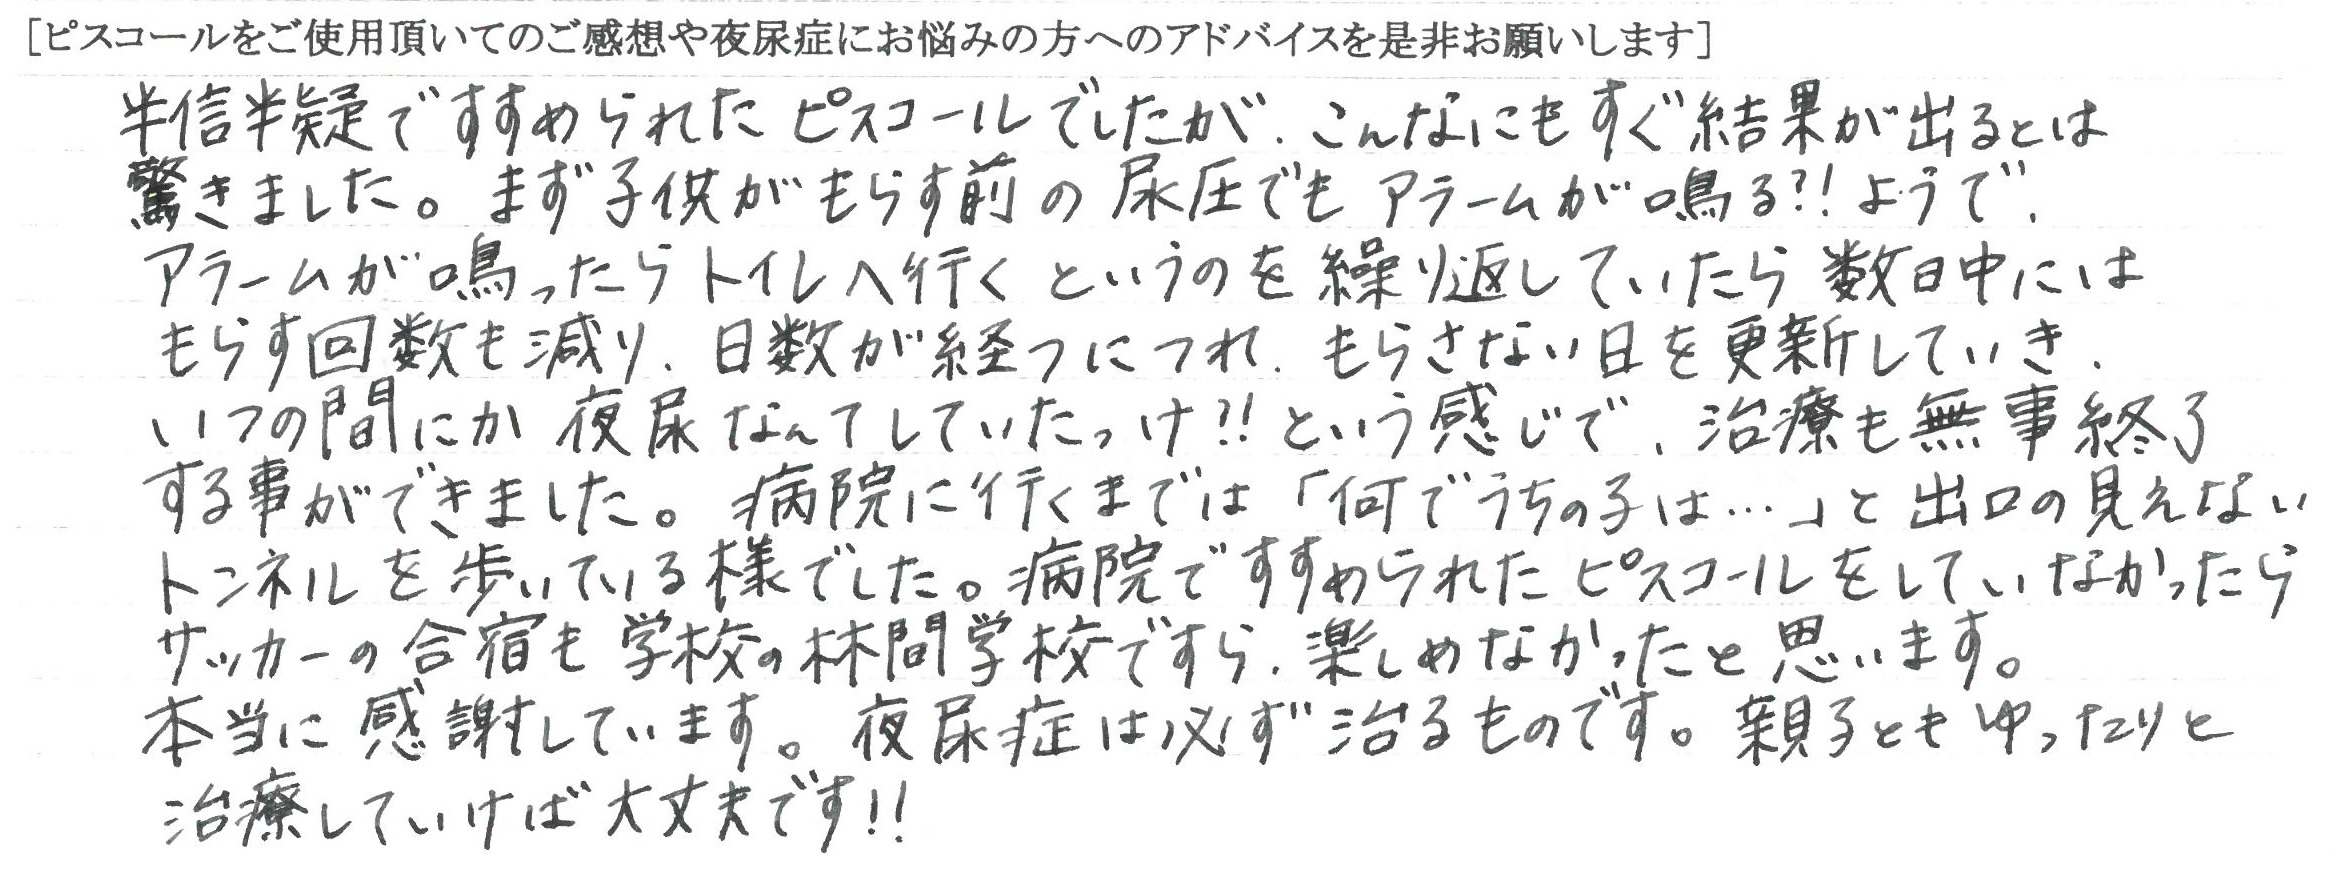 [ピスコールをご使用頂いてのご感想や夜尿症にお悩みの方へのアドバイスを是非お願いします]
半信半疑ですすめられた ピスコールでしたが、こんなにも すぐ結果が出るとは
驚きました。まず子供がもらす前の 尿圧でも アラームが鳴る?!ようで、
アラームが鳴ったらトイレへ行く というのを繰り返していたら 数日中には
もらす回数も減り、日数が経つにつれ、もらさない日を更新していき、
いつの間にか 夜尿なんてしていたっけ?!という感じで、治療も無事終了
する事ができました。病院に行くまでは「何でうちの子は…」と出口の見えない
トンネルを歩いている様でした。病院ですすめられた ピスコールをしていなかったら
サッカーの合宿も 学校の林間学校ですら、楽しめなかったと思います。
本当に感謝しています。夜尿症は必ず治るものです。親子ともゆったりと
治療していけば大丈夫です!!